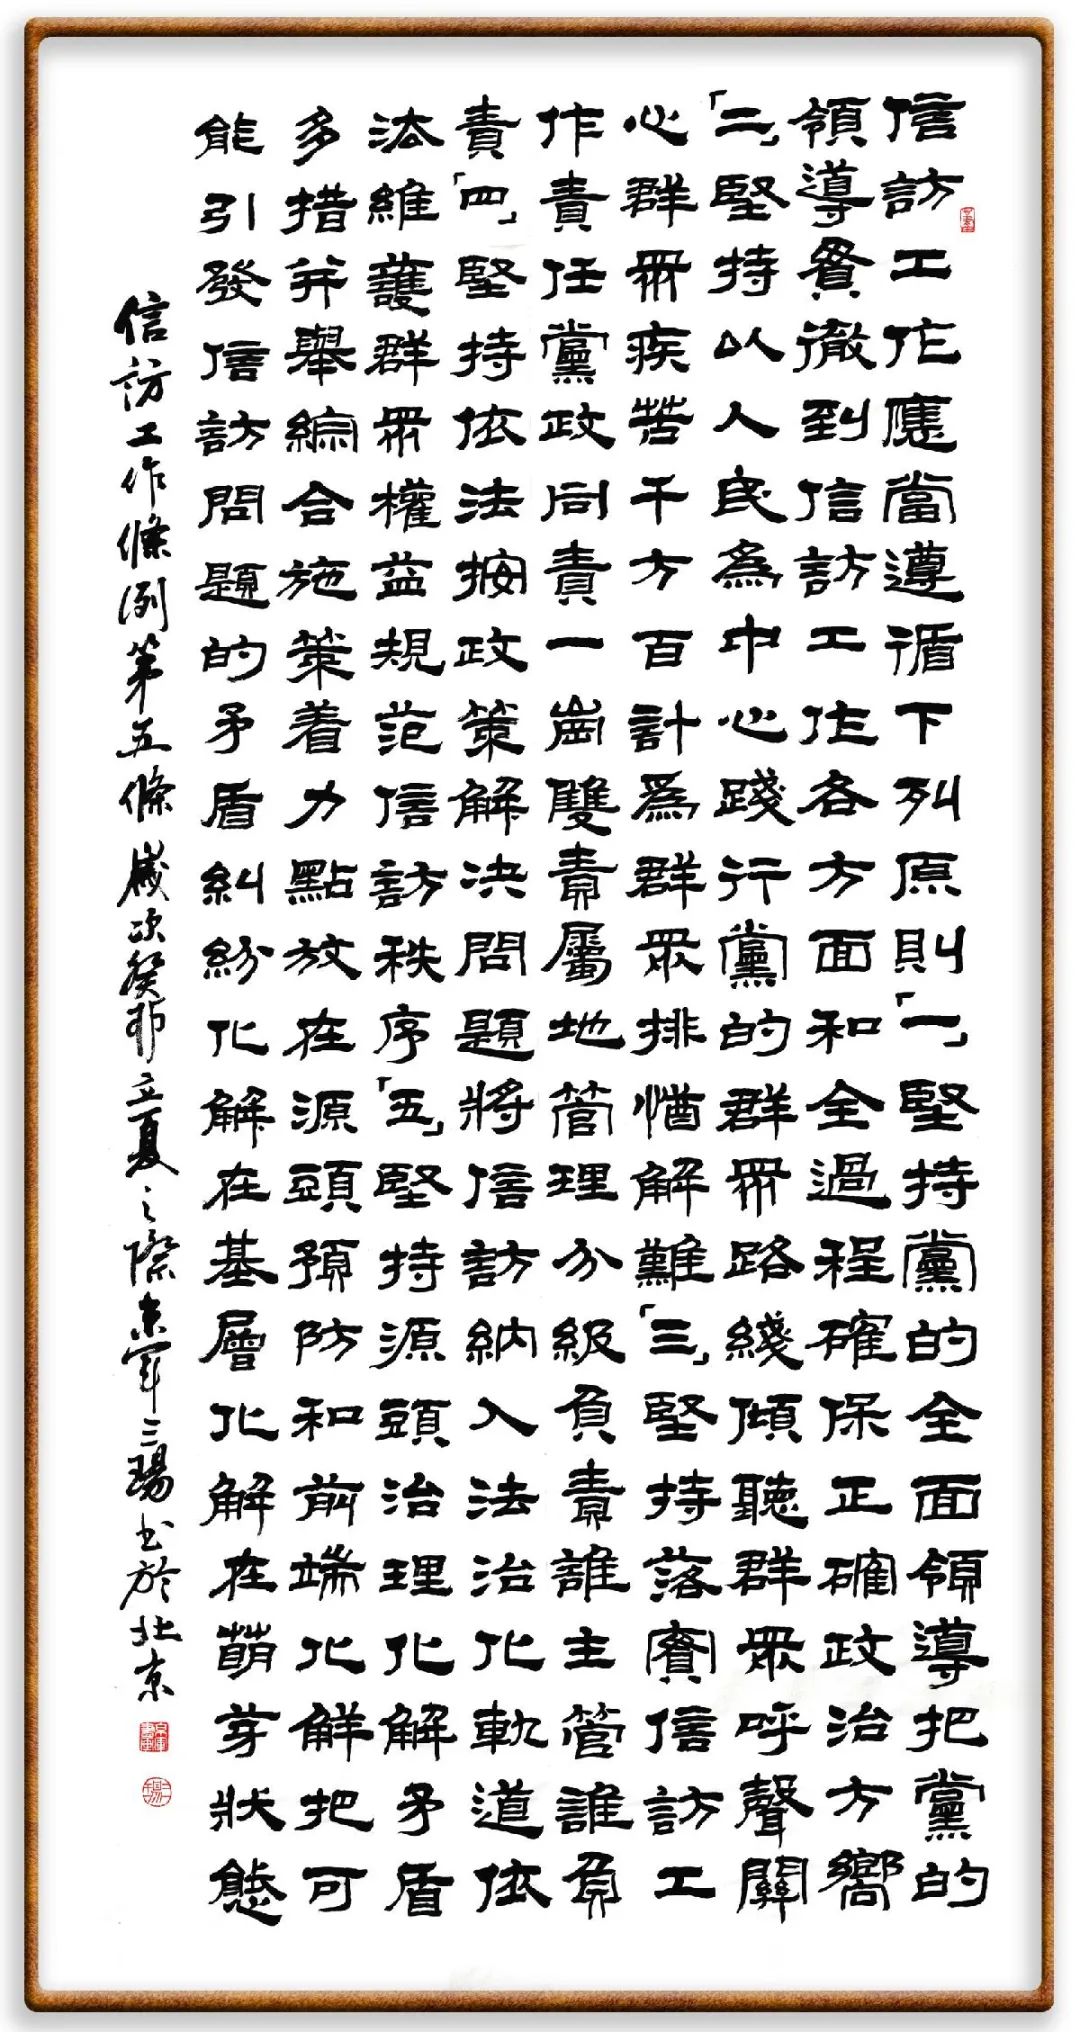 信訪工作應當遵循下列原則「一」堅持黨的全面領導把黨的
領導貫徹到信訪工作各方面和全過程確保正確政治方嚮
「二」堅持以人民為中心踐行黨的群眾路綫傾聽群眾呼聲關
心群眾疾苦千方百計爲群眾排解難「三」堅持落實信訪工
作責任黨政同責一崗雙責屬地管理分級負責誰主管誰負
責「四」堅持依法按政策解決問題將信訪納入法治化軌道依
法維護群眾權益規范信訪秩序「五」堅持源頭治理化解矛盾
多措并舉綜合施策着力點放在源頭預防和前端化解把可
能引發信訪問題的矛盾糾紛化解在基層化解在萌芽狀態
信訪工作條例第五條歲次癸卯立夏之際京軍三瑒書於北京